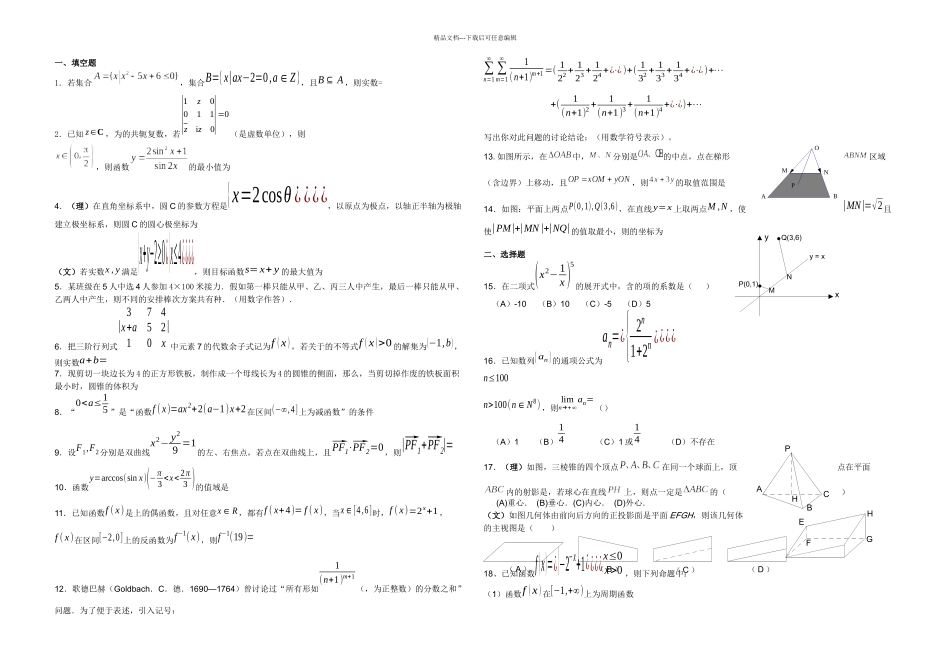 精品文档---下载后可任意编辑
一、填空题
1．若集合 A={x|x²−5x+6≤0}，集合 B={x|ax−2=0,a∈Z}，且 B⊆A，则实数=
2．已知 z∈C，为的共轭复数，若 |1 z 0; 0 1 1; z̄ iz 0|=0（是虚数单位），则
x∈(0,π/2)，则函数 y=(2sin²x+1)/sin2x 的最小值为
4．（理）在直角坐标系中，圆 C 的参数方程是{x=2cosθ¿¿¿¿，以原点为极点，以轴正半轴为极轴
建立极坐标系，则圆 C 的圆心极坐标为
（文）若实数 x,y 满足，则目标函数 s=x+y 的最大值为
5．某班级在 5 人中选 4 人参加 4×100 米接力．假如第一棒只能从甲、乙、丙三人中产生，最后一棒只能从甲、
乙两人中产生，则不同的安排棒次方案共有种．（用数字作答）．
6．把三阶行列式 |3 7 4; x+a 5 2; 1 0 x| 中元素 7 的代数余子式记为 f(x)，若关于的不等式 f(x)>0 的解集为(−1,b)，
则实数 a+b=
7．现剪切一块边长为 4 的正方形铁板，制作成一个母线长为 4 的圆锥的侧面，那么，当剪切掉作废的铁板面积
最小时，圆锥的体积为
8．“ 0<a≤1/5 ”是“函数 f(x)=ax²+2(a−1)x+2 在区间(−∞,4]上为减函数”的条件
9．设 F₁,F₂ 分别是双曲线 x²−y²/9=1 的左、右焦点，若点在双曲线上，且 PF₁·PF₂=0，则|PF₁+PF₂|=
10．函数 y=arccos(sin x)(−π/3<x<2π/3) 的值域是
11．已知函数 f(x) 是上的偶函数，且对任意 x∈R，都有 f(x+4)=f(x)，当 x∈[4,6] 时，f(x)=2ˣ+1，
f(x) 在区间[−2,0]上的反函数为 f⁻¹(x)，则 f⁻¹(19)=
12．歌德巴赫（Goldbach．C．德．1690—1764）曾讨论过“所有形如 1/(n+1)^(m+1)（，为正整数）的分数之和”
问题．为了便于表述，引入记号：
∑(n=1,∞)∑(m=1,∞) 1/(n+1)^(m+1) =(1/2²+1/2³+1/2⁴+¿·¿)+(1/3²+1/3³+1/3⁴+¿·¿)+⋯
+(1/(n+1)²+1/(n+1)³+1/(n+1)⁴+¿·¿)+⋯
写出你对此问题的讨论结论：（用数学符号表示）．
13.如图所示，在 ΔOAB 中，M、N 分别是 OA、OB 的中点，点在梯形 ABNM 区域
（含边界）上移动，且 OP=xOM+yON，则 4x+3y 的取值范围是
O
M N
P
A B
14．如图：平面上两点 P(0,1),Q(3,6)，在直线 y=x 上取两点 M,N，使 |MN|=√2 且
使 |PM|+|MN|+|NQ| 的值取最小，则的坐标为
y
Q(3,6)
y = x
N
P(0,1)
M
x
二、选择题
15．在二项式 (x²−1/x)⁵ 的展开式中，含的项的系数是（ ）
（A）-10 （B）10 （C）-5 （D）5
16．已知数列{aₙ}的通项公式为 aₙ=¿{2ⁿ/(1+2ⁿ)¿¿¿¿
n≤100
n>100(n∈N⁸)，则 lim(n→+∞) aₙ=（）
（A）1 （B）1/4 （C）1 或 1/4 （D）不存在
17．（理）如图，三棱锥的四个顶点 P、A、B、C 在同一个球面上，顶 点在平面
ABC 内的射影是，若球心在直线 PH 上，则点一定是 ΔABC 的（ ）
(A)重心． (B)垂心．(C)内心． (D)外心．
P
A H C
B
（文）如图几何体由前向后方向的正投影面是平面 EFGH，则该几何体
的主视图是（ ）
E H
F G
（A） （B） （C） （D）
18、已知函数，则下列命题中：
（1）函数 f(x) 在[−1,+∞)上为周期函数